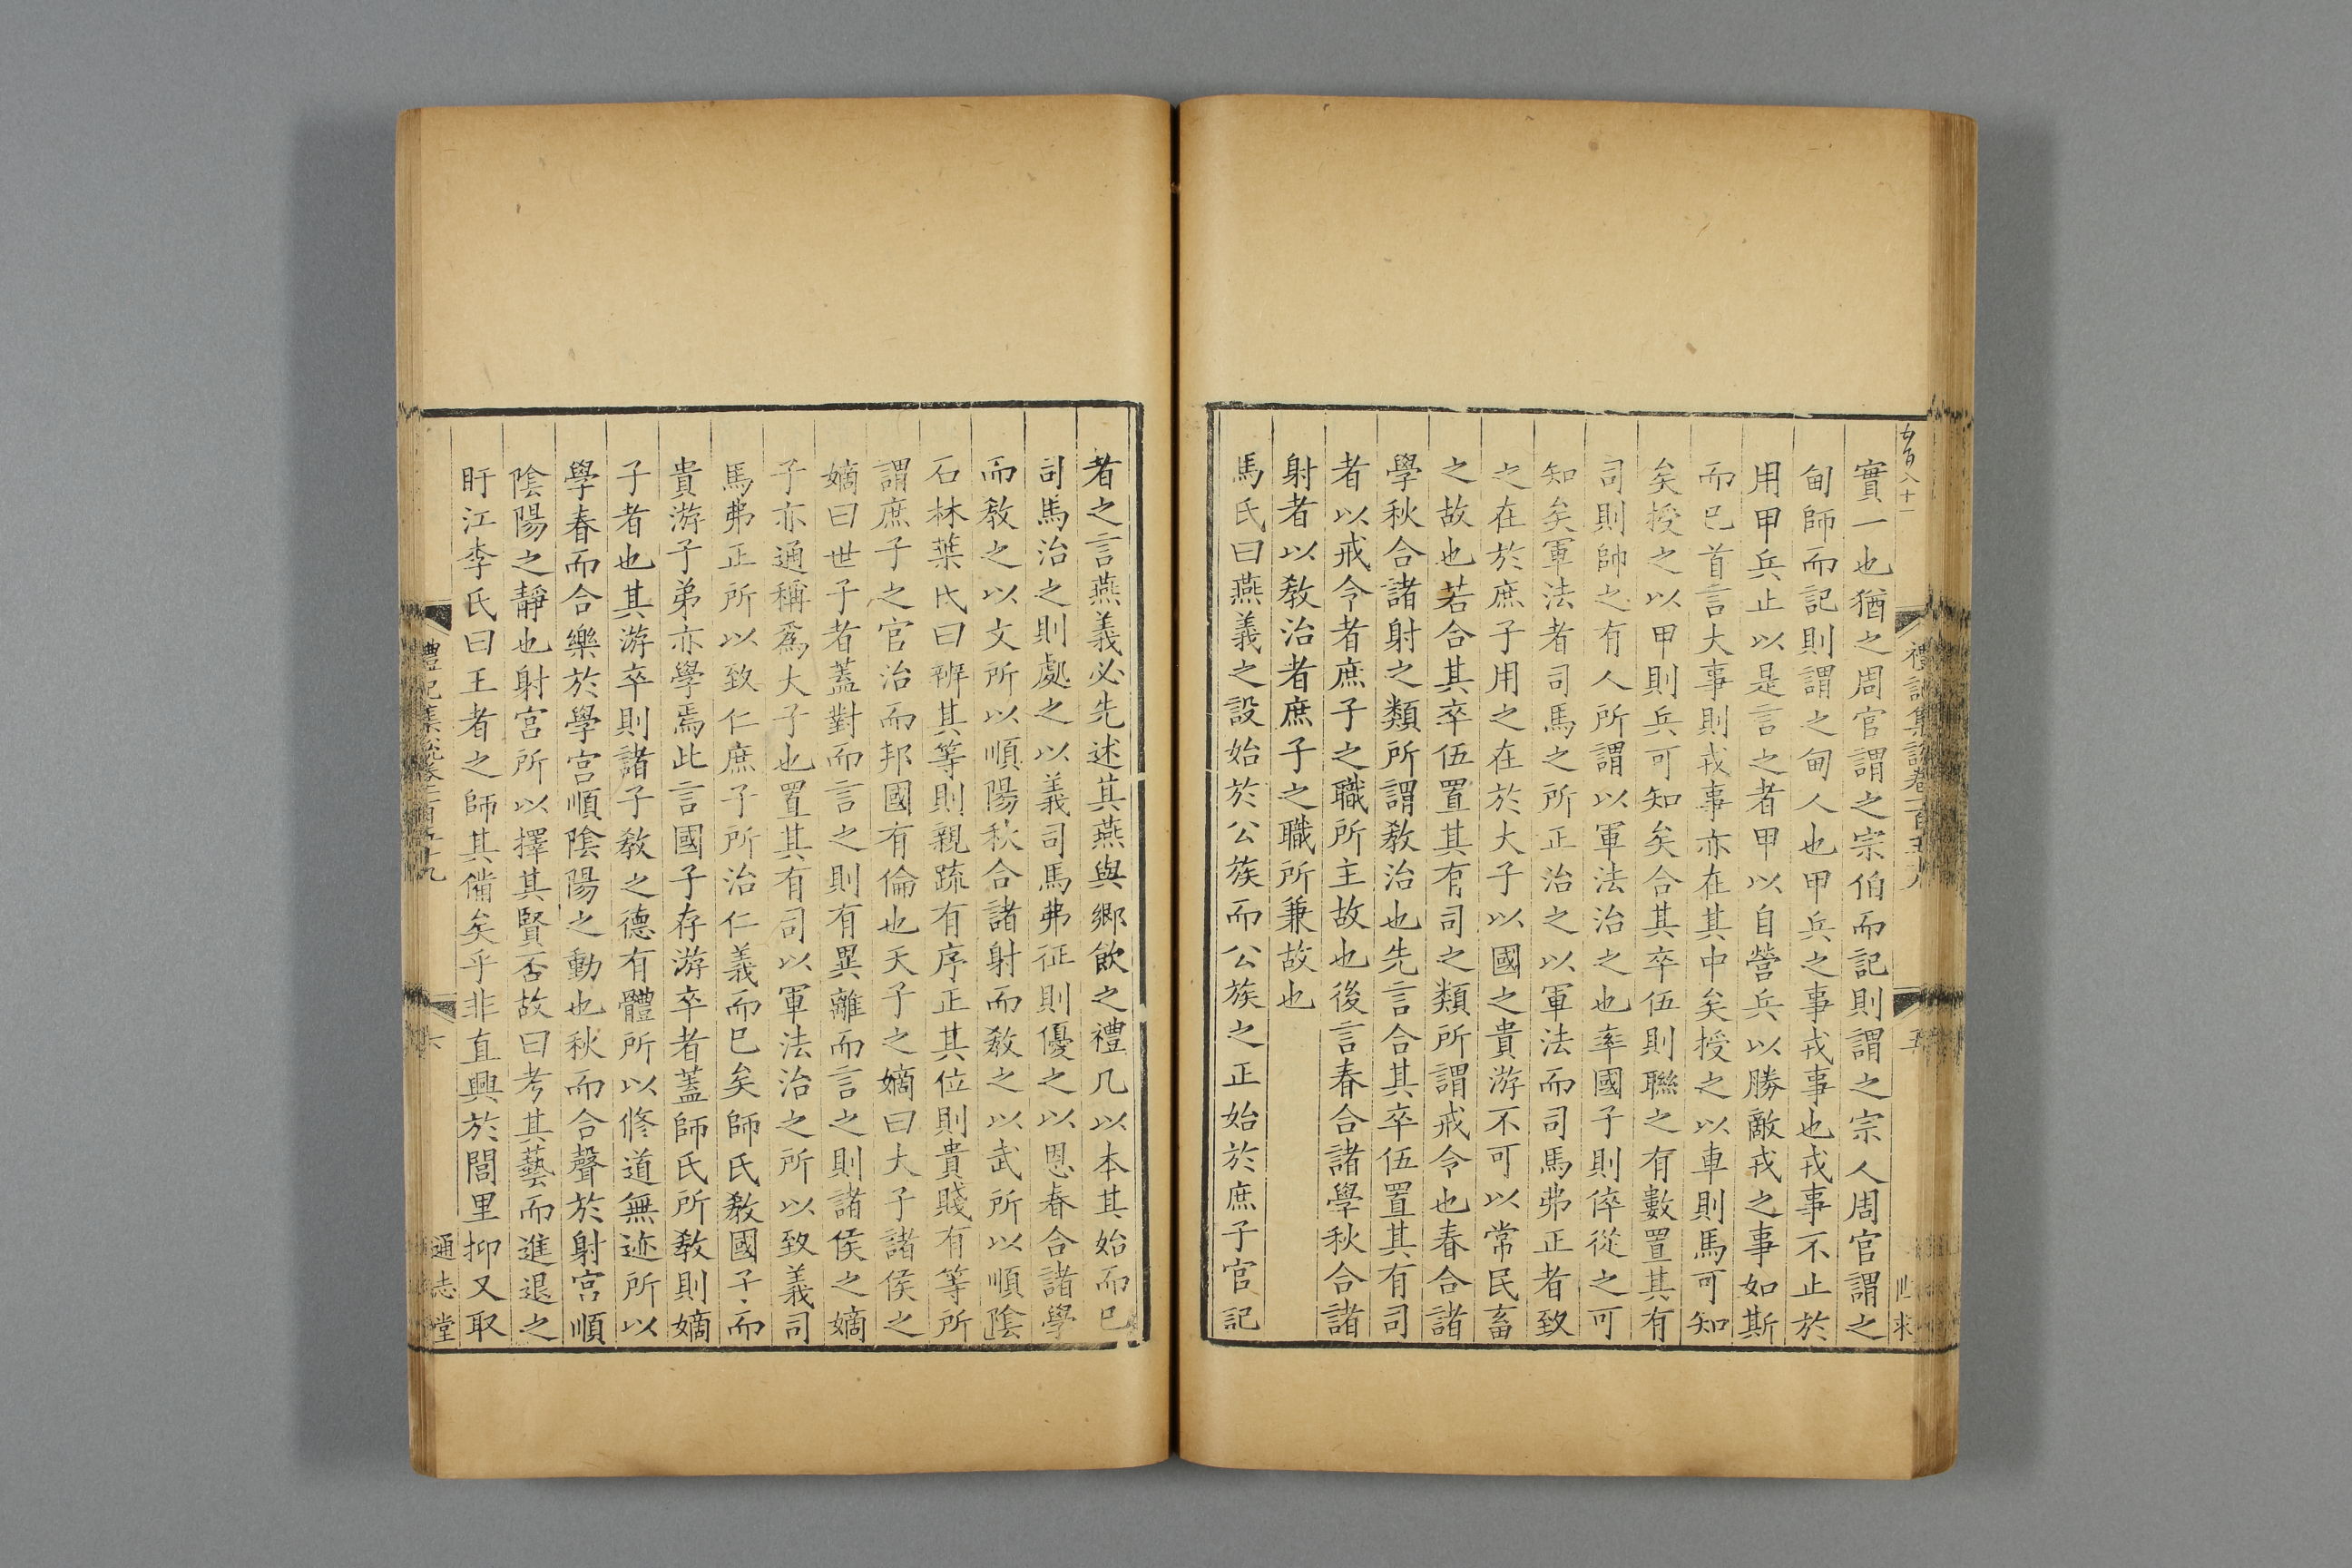 實一也猶之周官謂之宗伯而記則謂之宗人周官謂之
甸師而記則謂之甸人也甲兵之事戎事也戎事不止於
用甲兵止以是言之者甲以自營兵以勝敵戎之事如斯
而已首言大事則戎事亦在其中矣授之以車則馬可知
矣授之以甲則兵可知矣合其卒伍則聯之有數置其有
司則帥之有人所謂以軍法治之也率國子則倅從之可
知矣軍法者司馬之所正治之以軍法而司馬弗正者致
之在於庶子用之在於大子以國之貴游不可以常民畜
之故也若合其卒伍置其有司之類所謂戒令也春合諸
學秋合諸射之類所謂敎治也先言合其卒伍置其有司
者以戒令者庶子之職所主故也後言春合諸學秋合諸
射者以敎治者庶子之職所兼故也
馬氏曰燕義之設始於公族而公族之正始於庶子官記
者之言燕義必先述其燕與鄉飲之禮几以本其始而已
司馬治之則處之以義司馬弗征則優之以恩春合諸學
而敎之以文所以順陽秋合諸射而敎之以武所以順陰
石林葉氏曰辨其等則親疏有序正其位則貴賤有等所
謂庶子之官治而邦國有倫也天子之嫡曰大子諸侯之
嫡曰世子者蓋對而言之則有異離而言之則諸侯之嫡
子亦通稱爲大子也置其有司以軍法治之所以致義司
馬弗正所以致仁庶子所治仁義而已矣師氏敎國子而
貴游子弟亦學焉此言國子存游卒者蓋師氏所敎則嫡
子者也其游卒則諸子敎之德有體所以修道無迹所以
學春而合樂於學宮順陰陽之動也秋而合聲於射宮順
陰陽之靜也射宮所以擇其賢否故曰考其藝而進退之
盱江李氏曰王者之師其備矣乎非直興於閭里抑又取
禮記集說卷一百五十九
六
通志堂